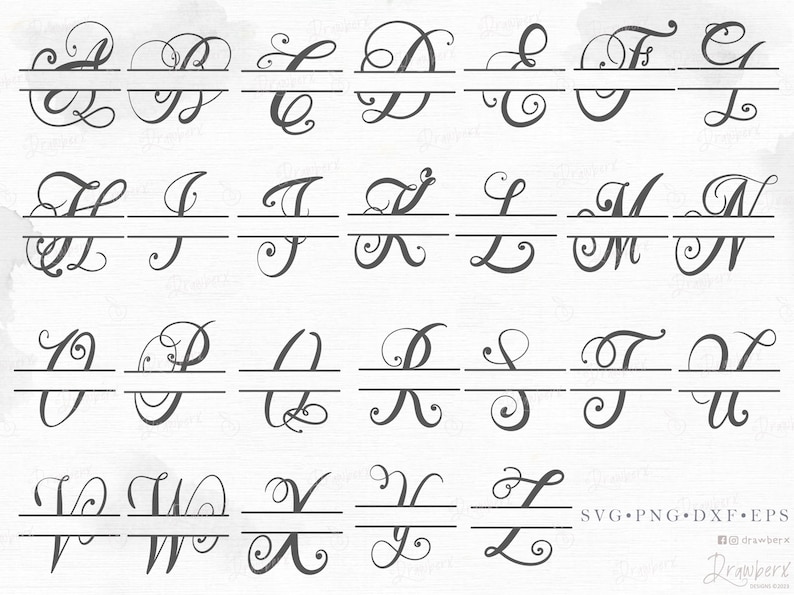 A B C D E F G
H I J K L M N
O P Q R S T U
V W X Y Z
SVG•PNG•DXF•EPS
drawberx
Drawberx
DESIGNS ©2023